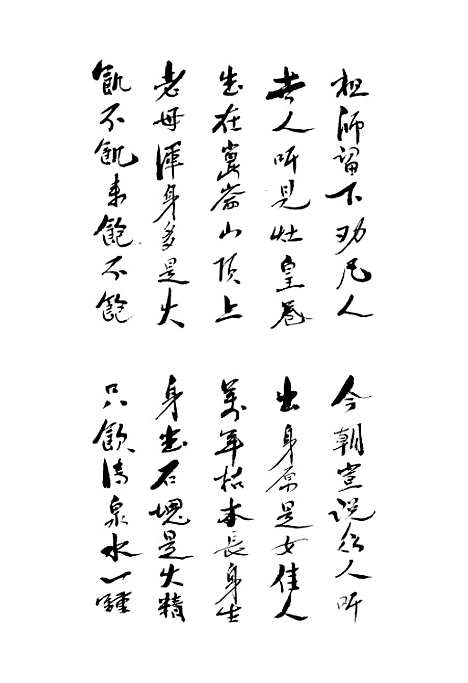 祖师留下劝凡人
今朝宣说众人听
人听見灶皇卷
出身原是女佳人
坐在崑崙山顶上
萬年枯木長身生
老母渾身多是火
身坐石塊是火精
飢不飢来飽不飽
只飲清泉水一鍾